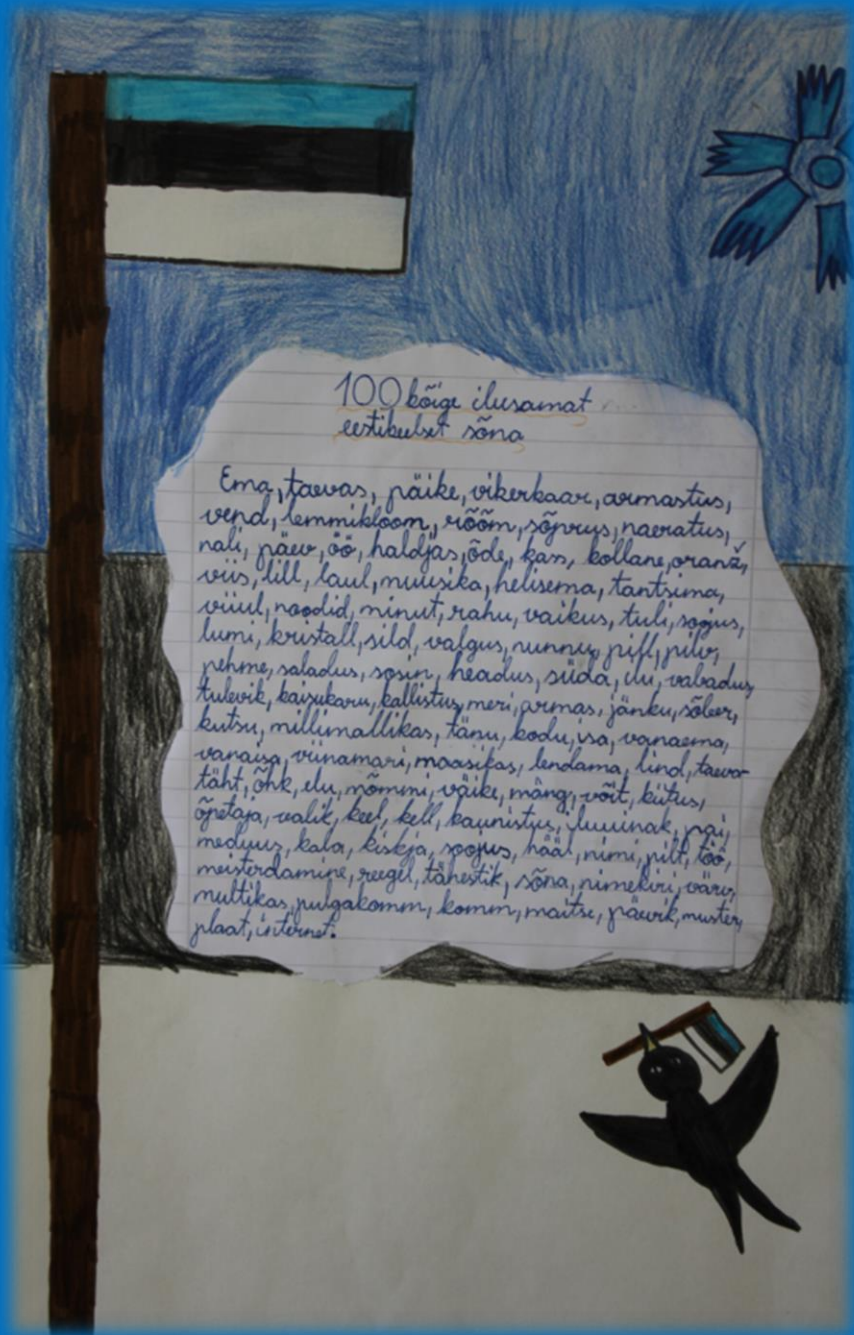 100 kõige ilusamat
eestikeelset sõna
Ema, taevas, päike, vikerkaar, armastus,
vend, lemmikloom, rõõm, sõprus, naeratus,
nali, päev, öö, haldjas, õde, kass, kollane, oranž,
viis, lill, laul, muusika, helisema, tantsima,
viiul, noodid, minut, rahu, vaikus, tuli, soojus,
lumi, kristall, sild, valgus, nunnu, pill, pilv,
pehme, saladus, sosin, headus, süda, ilu, vabadus,
tulevik, kaisukaru, kallistus, meri, armas, jänku, sõber,
kutsu, millimallikas, tänu, kodu, isa, vanaema,
vanaisa, viinamari, maasikas, lendama, lind, taeva-
täht, õhk, elu, nõmmi, väike, mäng, võit, kütus,
õpetaja, valik, keel, kell, kaunistus, iluuinak, pai,
meduus, kala, kiskja, soojus, hääl, nimi, pilt, töö,
meisterdamine, reegel, tähestik, sõna, nimekiri, värv,
multikas, pulgakomm, komm, maitse, päevik, muster,
plaat, internet.